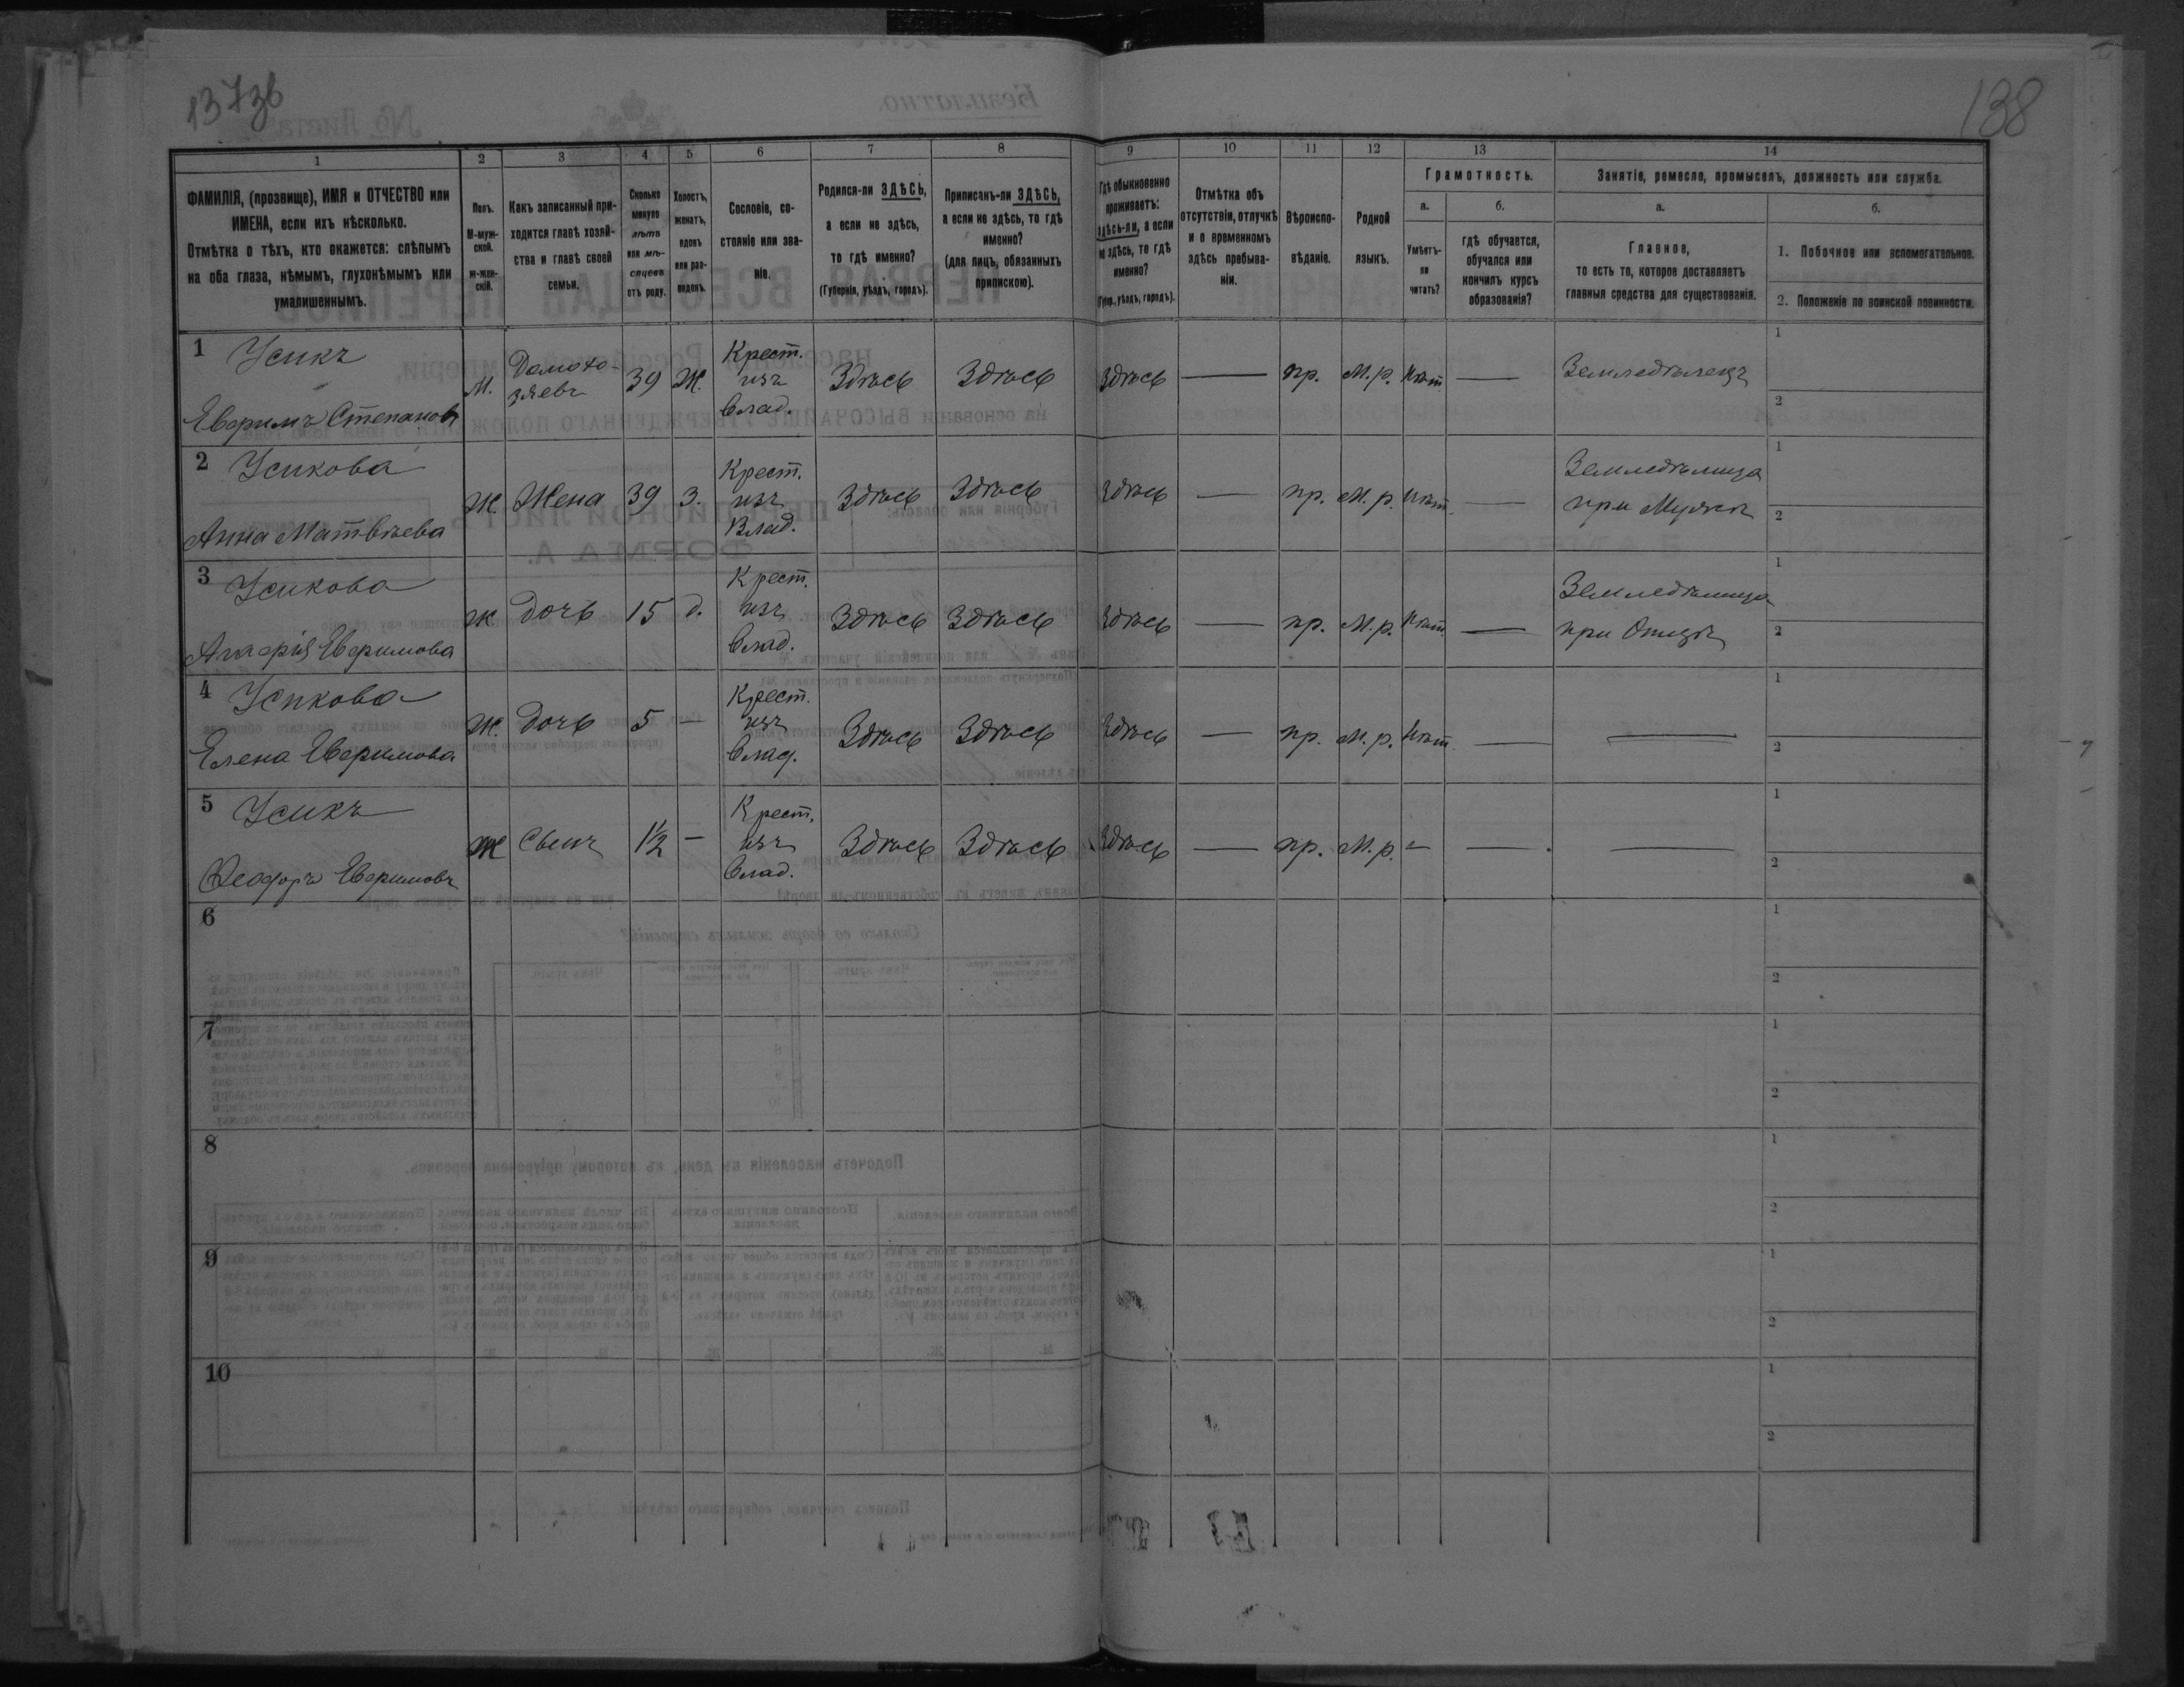 137зв
138
1
2
3
4
5
6
7
8
9
10
11
12
13
14
ФАМИЛІЯ, (прозвище), ИМЯ и ОТЧЕСТВО или
ИМЕНА, если ихъ нѣсколько.
Отмѣтка о тѣхъ, кто окажется: слѣпымъ
на оба глаза, нѣмымъ, глухонѣмымъ или
умалишеннымъ.
Полъ.
М-муж-
ской.
ж-жен-
скій.
Какъ записанный при-
ходится главѣ хозяй-
ства и главѣ своей
семьи.
Сколько
минуло
лѣтъ
или мѣ-
сяцевъ
отъ роду.
Холостъ,
женатъ,
вдовъ
или раз-
веденъ.
Сословіе, со-
стояніе или зва-
ніе.
Родился-ли ЗДѢСЬ,
а если не здѣсь,
то гдѣ именно?
(Губернія, уѣздъ, городъ).
Приписанъ-ли ЗДѢСЬ,
а если не здѣсь, то гдѣ
именно?
(для лицъ, обязанныхъ
припискою).
Гдѣ обыкновенно
проживаетъ:
здѣсь-ли, а если
не здѣсь, то гдѣ
именно?
(Губер., уѣздъ, городъ).
Отмѣтка объ
отсутствіи, отлучкѣ
и о временномъ
здѣсь пребыва-
ніи.
Вѣроиспо-
вѣданіе.
Родной
языкъ.
Грамотность.
а.
Умѣетъ-
ли
читать?
б.
гдѣ обучается,
обучался или
кончилъ курсъ
образованія?
Занятіе, ремесло, промыселъ, должность или служба.
а.
Главное,
то есть то, которое доставляетъ
главныя средства для существованія.
б.
1. Побочное или вспомогательное.
2. Положеніе по воинской повинности.
1 Усикъ
Евфимъ Степановъ
М.
Домохо-
зяевъ
39
Ж.
Крест.
изъ
Влад.
Здѣсь
Здѣсь
Здѣсь
—
пр.
М.р.
Нѣт
—
Земледѣлецъ
1
2
2 Усикова
Анна Матвѣева
Ж
Жена
39
З.
Крест.
изъ
Влад.
Здѣсь
Здѣсь
Здѣсь
—
пр.
М.р.
Нѣт.
—
Земледѣлица
при Мужѣ
1
2
3 Усикова
Евфимова
Ж
Дочь
15
д.
Крест.
изъ
Влад.
Здѣсь
Здѣсь
Здѣсь
—
пр.
М.р.
Нѣт
—
Земледѣлица
при Отцѣ
1
2
4 Усикова
Елена Евфимова
Ж.
Дочь
5
—
Крест.
изъ
Влад.
Здѣсь
Здѣсь
Здѣсь
—
пр.
М.р.
Нѣт.
—
—
1
2
5 Усикъ
Феодоръ Евфимовъ
Ж
Сынъ
1½
—
Крест.
изъ
Влад.
Здѣсь
Здѣсь
Здѣсь
—
пр.
М.р.
—
—
—
1
2
6
1
2
7
1
2
8
1
2
9
1
2
10
1
2